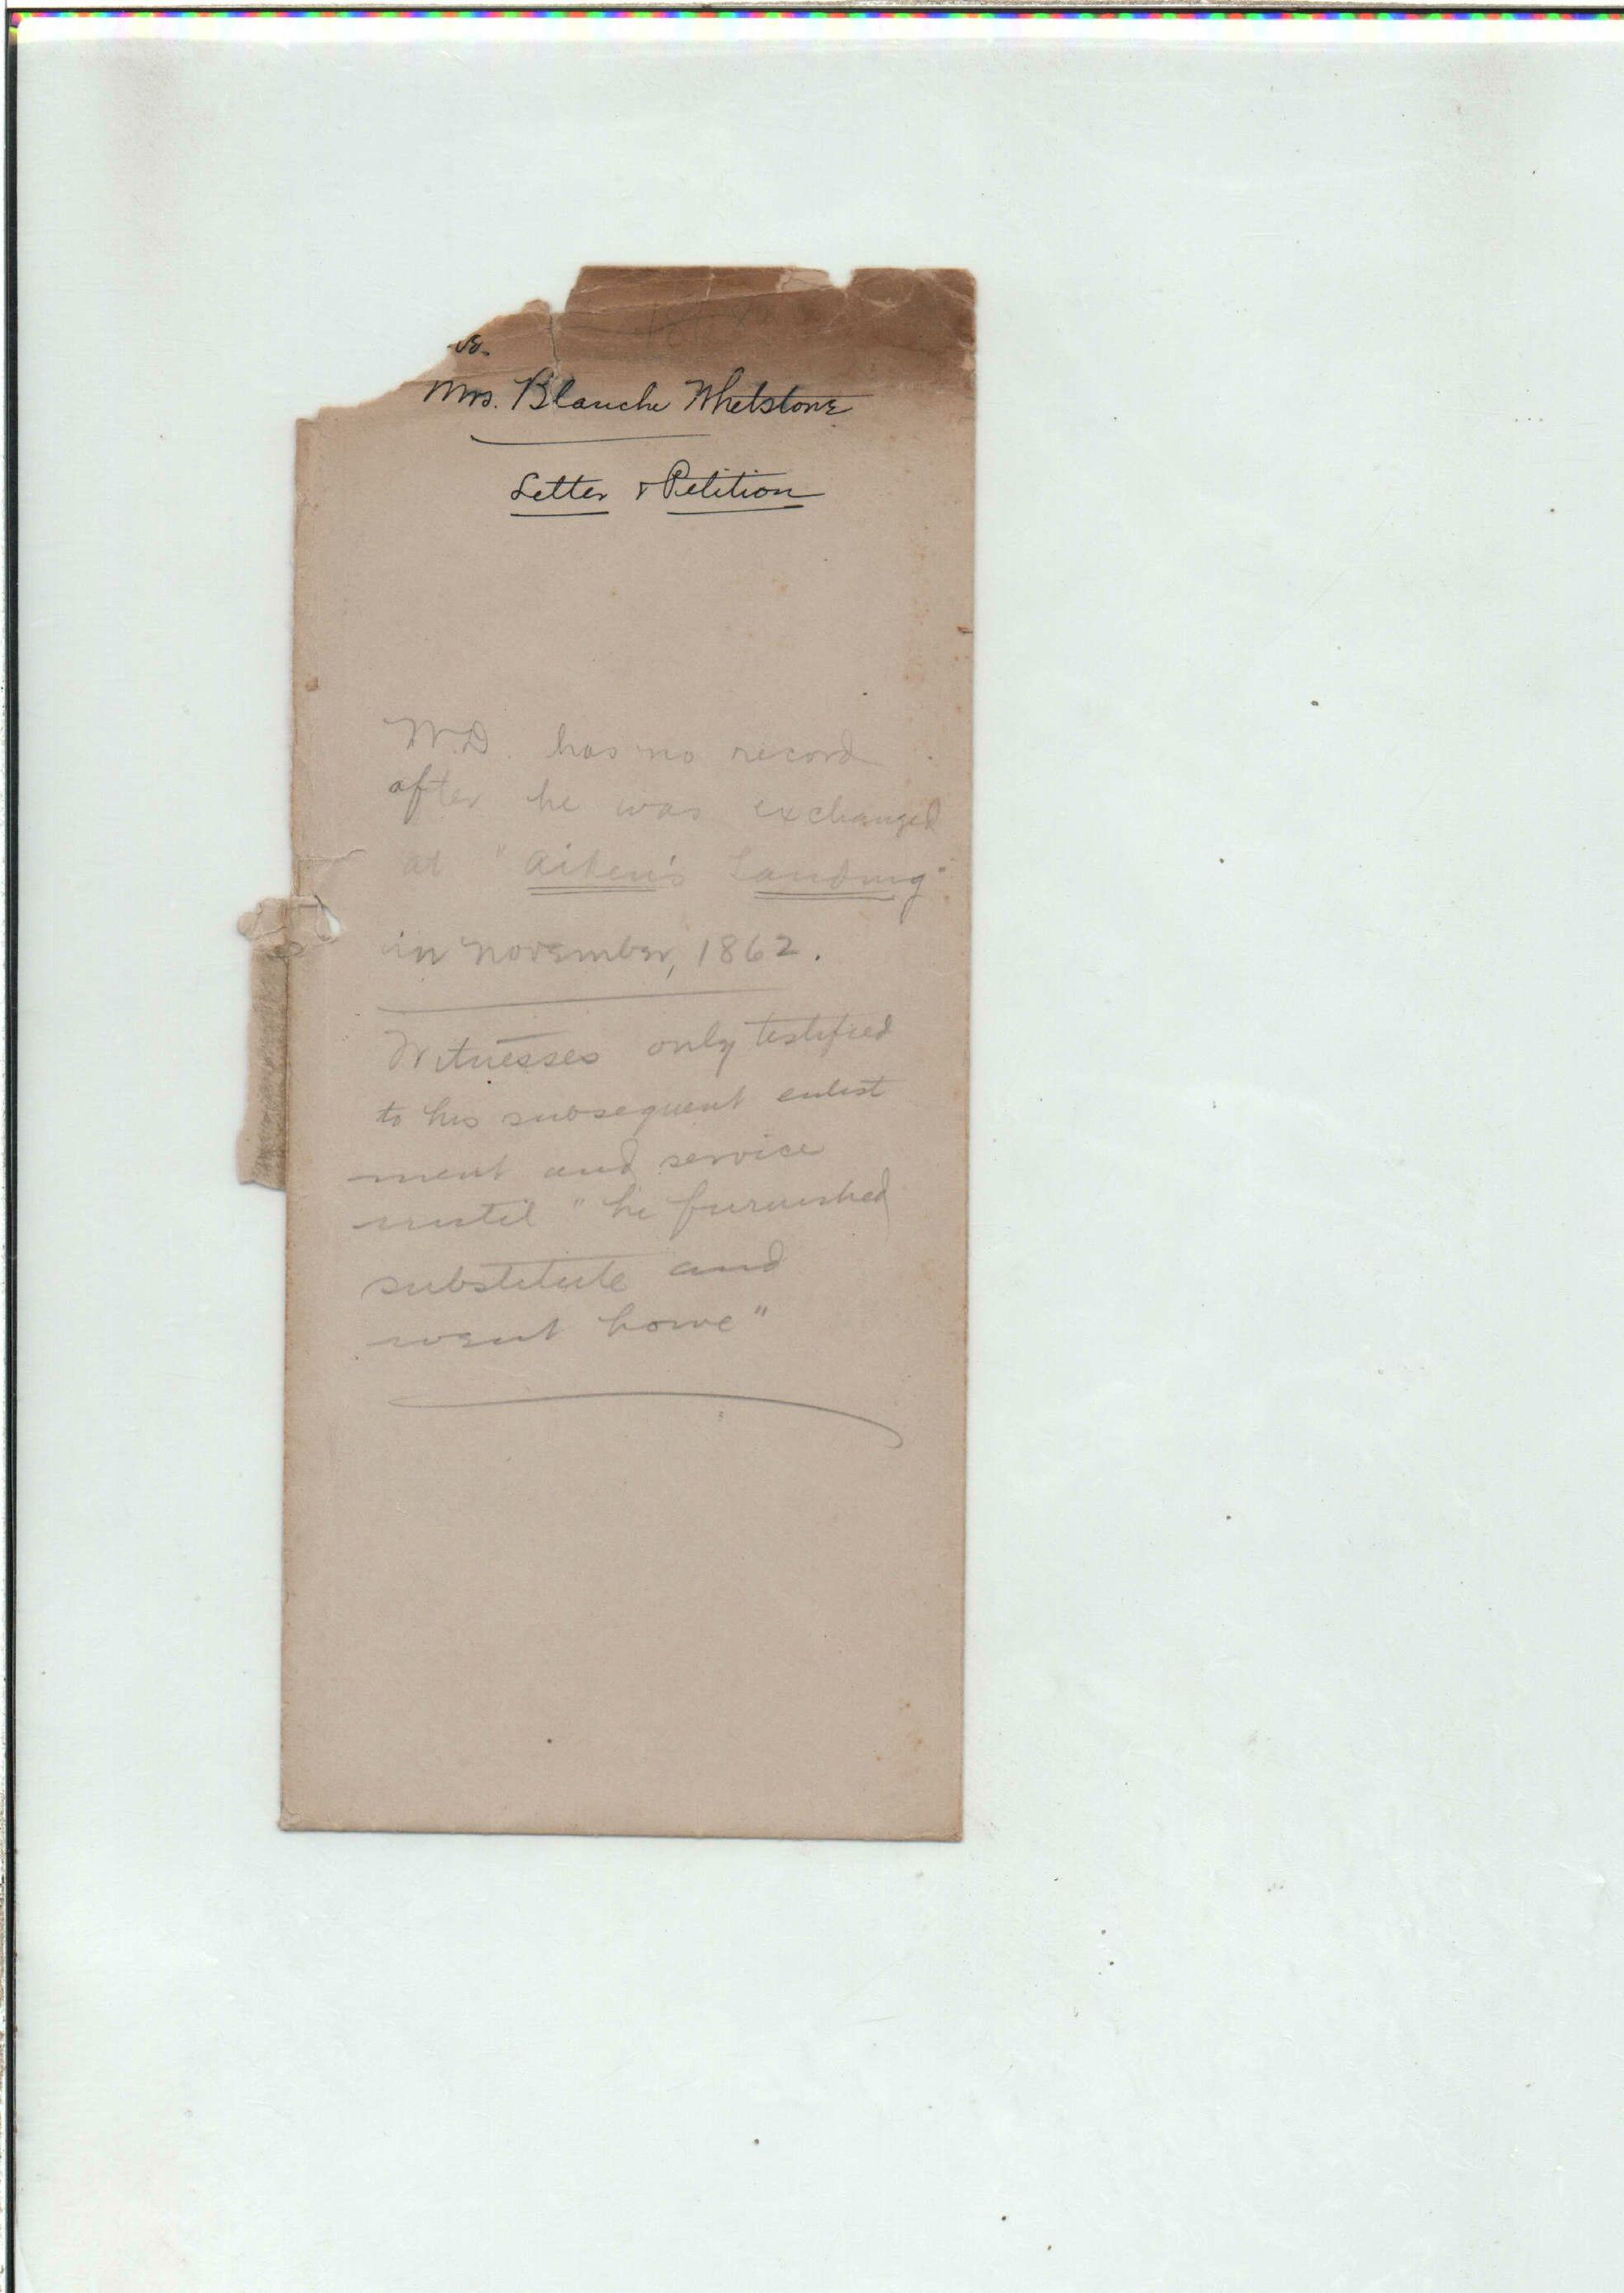 Mrs. Blanche Whetstone
Letter & Petition
W.D. has no record
after he was exchanged
at "Aiken's Landing"
in November, 1862.
Witnesses only testified
to his subsequent enlist
ment and service
until "he furnished
substitute and
went home"